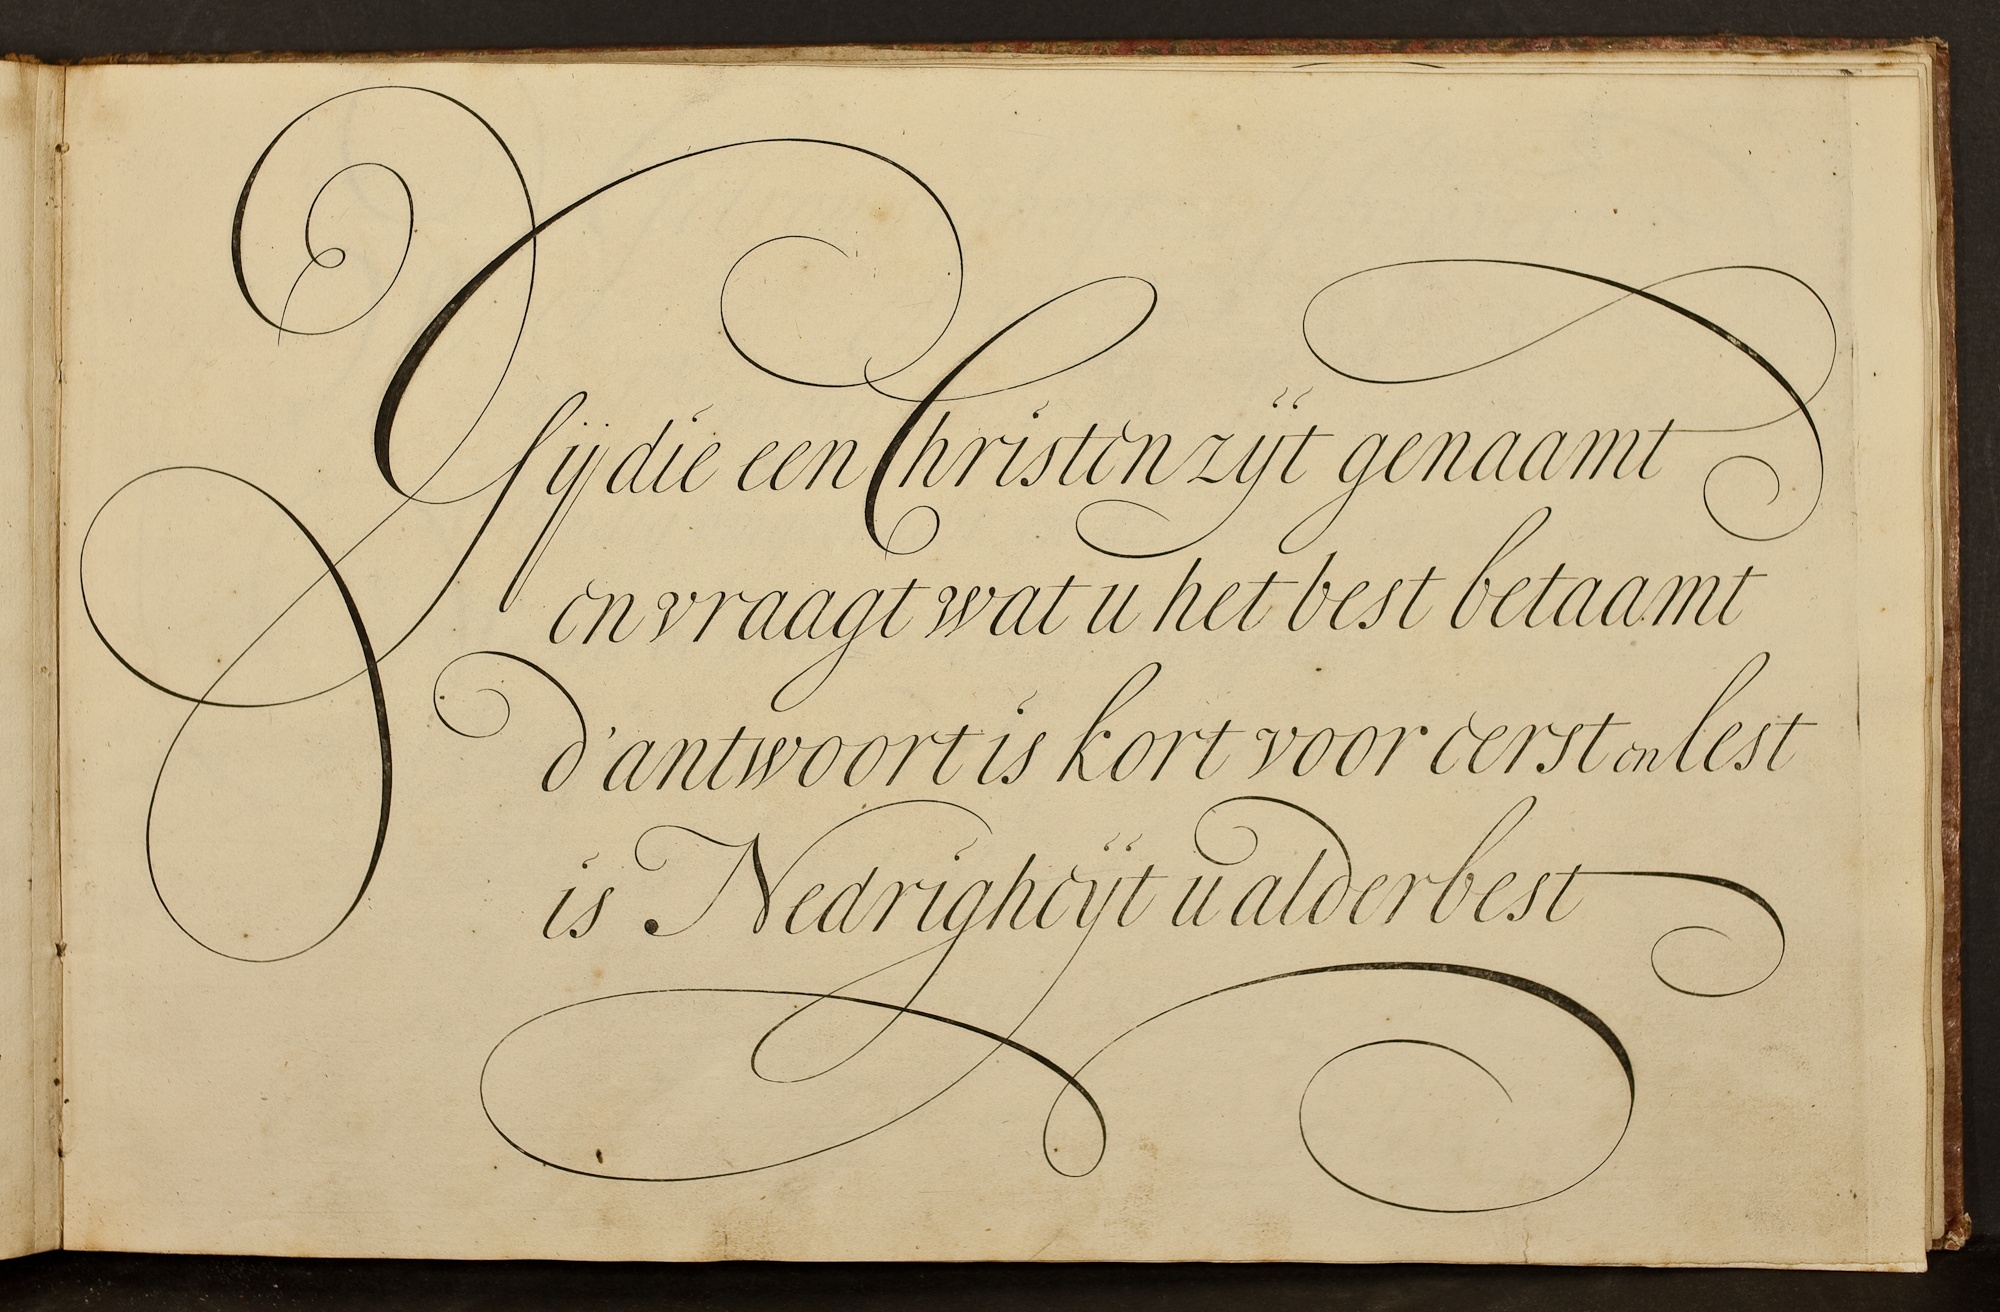 Gij die een Christen zijt genaamt
en vraagt wat u het best betaamt
d'antwoort is kort voor eerst en lest
is Nedrigheijt u alderbest